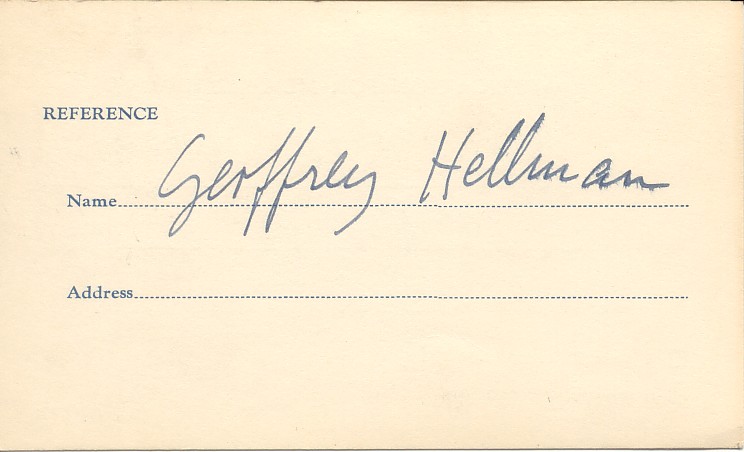 REFERENCE
Name Geoffrey Hellman
Address